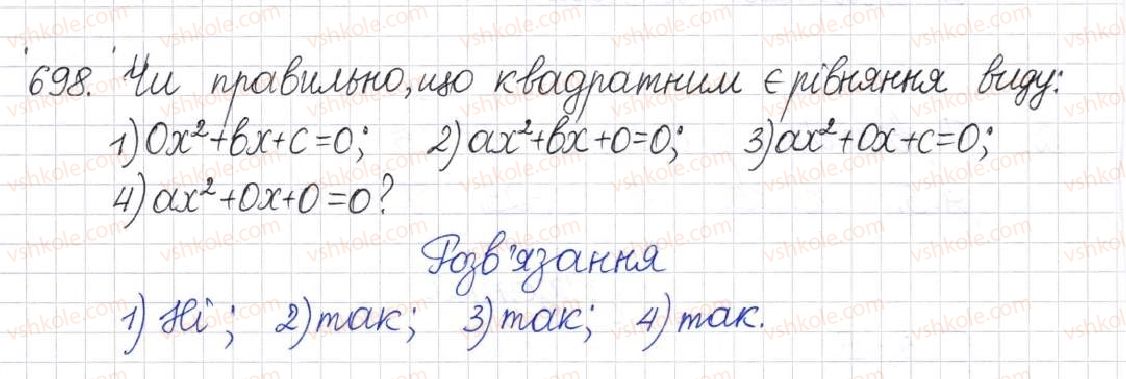 698. Чи правильно, що квадратним є рівняння виду:
1) 0x²+bx+c=0; 2) ax²+bx+0=0; 3) ax²+0x+c=0;
4) ax²+0x+0=0?
Розв'язання
1) Ні; 2) так; 3) так; 4) так.